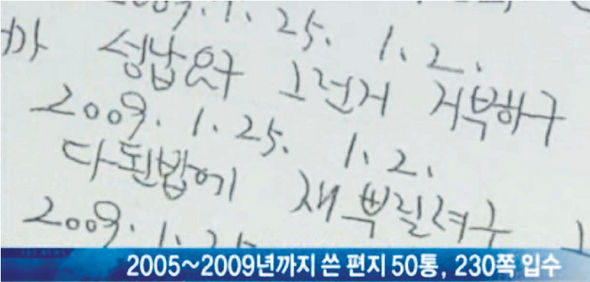 2009.1.25. 1.2.
까 성납요구 그런거 거부하구
2009.1.25. 1.2.
다된밥에 재뿌릴려구
2009.1.25
2005~2009년까지 쓴 편지 50통, 230쪽 입수